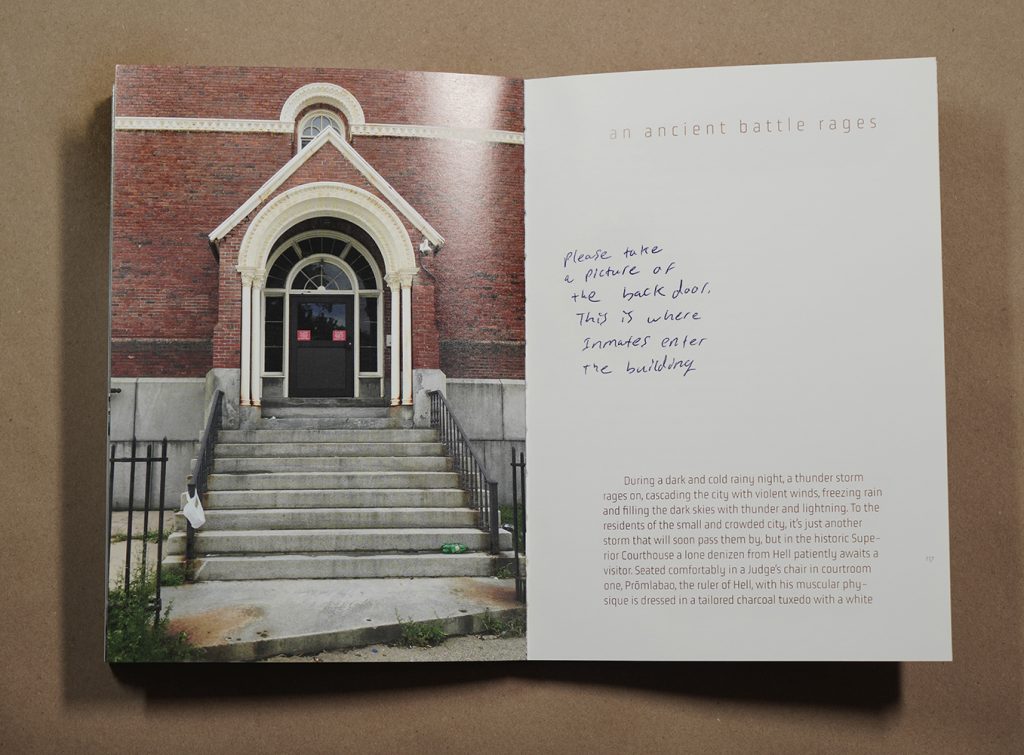 an ancient battle rages
please take
a picture of
the back door.
This is where
Inmates enter
the building
During a dark and cold rainy night, a thunder storm
rages on, cascading the city with violent winds, freezing rain
and filling the dark skies with thunder and lightning. To the
residents of the small and crowded city, it's just another
storm that will soon pass them by, but in the historic Supe-
rior Courthouse a lone denizen from Hell patiently awaits a
visitor. Seated comfortably in a Judge's chair in courtroom
one, Prōmlabao, the ruler of Hell, with his muscular phy-
sique is dressed in a tailored charcoal tuxedo with a white